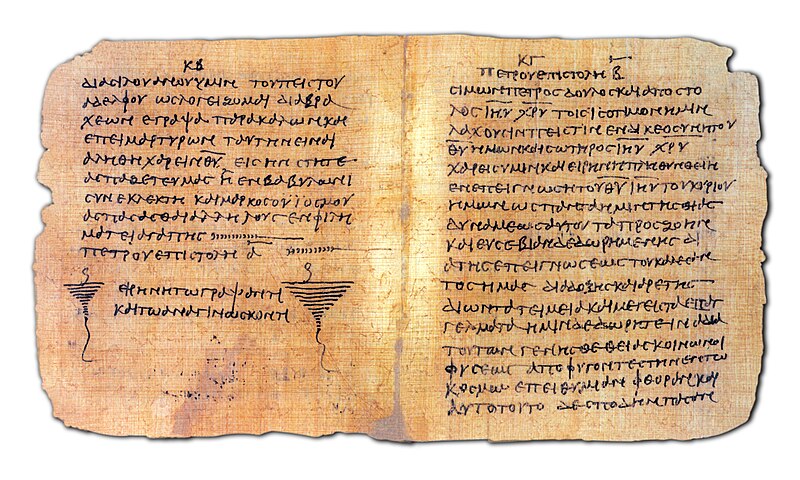 ΚΒ
ΔΙΑϹΙΛΟΥΑΝΟΥΥΜΙΝ ΤΟΥΠΕΙϹΤΟΥ
ΑΔΕΛΦΟΥ ΩϹΛΟΓΕΙΖΟΜΑΙ ΔΙΑΒΡΑ
ΧΕΩΝ ΕΓΡΑΨΑ ΠΑΡΑΚΑΛΩΝΚΑΙ
ΕΠΕΙΜΑΡΤΥΡΩΝ ΤΑΥΤΗΝΕΙΝΑΙ
ΑΛΗΘΗ ΧΑΡΕΙΝΘΥ ΕΙϹΗΝ ϹΤΗΤΕ
ΑϹΠΑΖΕΤΕΥΜΑϹ Η ΕΝΒΑΒΥΛΩΝΙ
ϹΥΝΕΚΛΕΚΤΗ ΚΑΙΜΑΡΚΟϹΟΥΙΟϹΜΟΥ
ΑϹΠΑϹΑϹΘΑΙΑΛΛΗΛΟΥϹΕΝΦΙΛΗ
ΜΑΤΕΙΑΓΑΠΗϹ
ΠΕΤΡΟΥΕΠΙϹΤΟΛΗ Α
ΕΙΡΗΝΗΤΩΓΡΑΨΑΝΤΙ
ΚΑΙΤΩΑΝΑΓΙΝΩϹΚΟΝΤΙ
ΚΓ
ΠΕΤΡΟΥΕΠΙϹΤΟΛΗ Β
ϹΙΜΩΝΠΕΤΡΟϹΔΟΥΛΟϹΚΑΙΑΠΟϹΤΟ
ΛΟϹ ΙΗΥ ΧΡΥ ΤΟΙϹΙϹΟΤΙΜΟΝΗΜΙΝ
ΛΑΧΟΥϹΙΝΠΙϹΤΙΝ ΕΝΔΙΚΕΟϹΥΝΗΤΟΥ
ΘΥΗΜΩΝΚΑΙϹΩΤΗΡΟϹΙΗΥ ΧΡΥ
ΧΑΡΕΙϹΥΜΙΝΚΑΙΕΙΡΗΝΗΠΛΗΘΥΝΘΕΙΗ
ΕΝΕΠΕΙΓΝΩϹΗΤΟΥΘΥΙΗΥΤΟΥΚΥΡΙΟΥ
ΗΜΩΝ ΩϹΠΑΝΤΑΗΜΙΝΤΗϹΘΕΙΑϹ
ΔΥΝΑΜΕΩϹΑΥΤΟΥΤΑΠΡΟϹΖΩΗΝ
ΚΑΙΕΥϹΕΒΙΑΝΔΕΔΩΡΗΜΕΝΗϹ ΔΙ
ΑΤΗϹΕΠΕΙΓΝΩϹΕΩϹΤΟΥΚΑΛΕϹΑΝ
ΤΟϹΗΜΑϹ ΔΙΑΔΟΞΗϹΚΑΙΑΡΕΤΗϹ
ΔΙΩΝΤΑΤΕΙΜΕΙΑΚΑΙΜΕΓΕΙϹΤΑΕΠΑΓ
ΓΕΛΜΑΤΑΗΜΙΝΔΕΔΩΡΗΤΕΙΝΑΔΙΑ
ΤΟΥΤΩΝ ΓΕΝΗϹΘΕΘΕΙΑϹΚΟΙΝΩΝΟΙ
ΦΥϹΕΩϹ ΑΠΟΦΥΓΟΝΤΕϹΤΗΝΕΝΤΩ
ΚΟϹΜΩ ΕΠΕΙΘΥΜΙΑΝ ΦΘΟΡΑΝΚΑΙ
ΑΥΤΟΤΟΥΤΟ ΔΕϹΠΟΔΗΝΠΑϹΑΝ